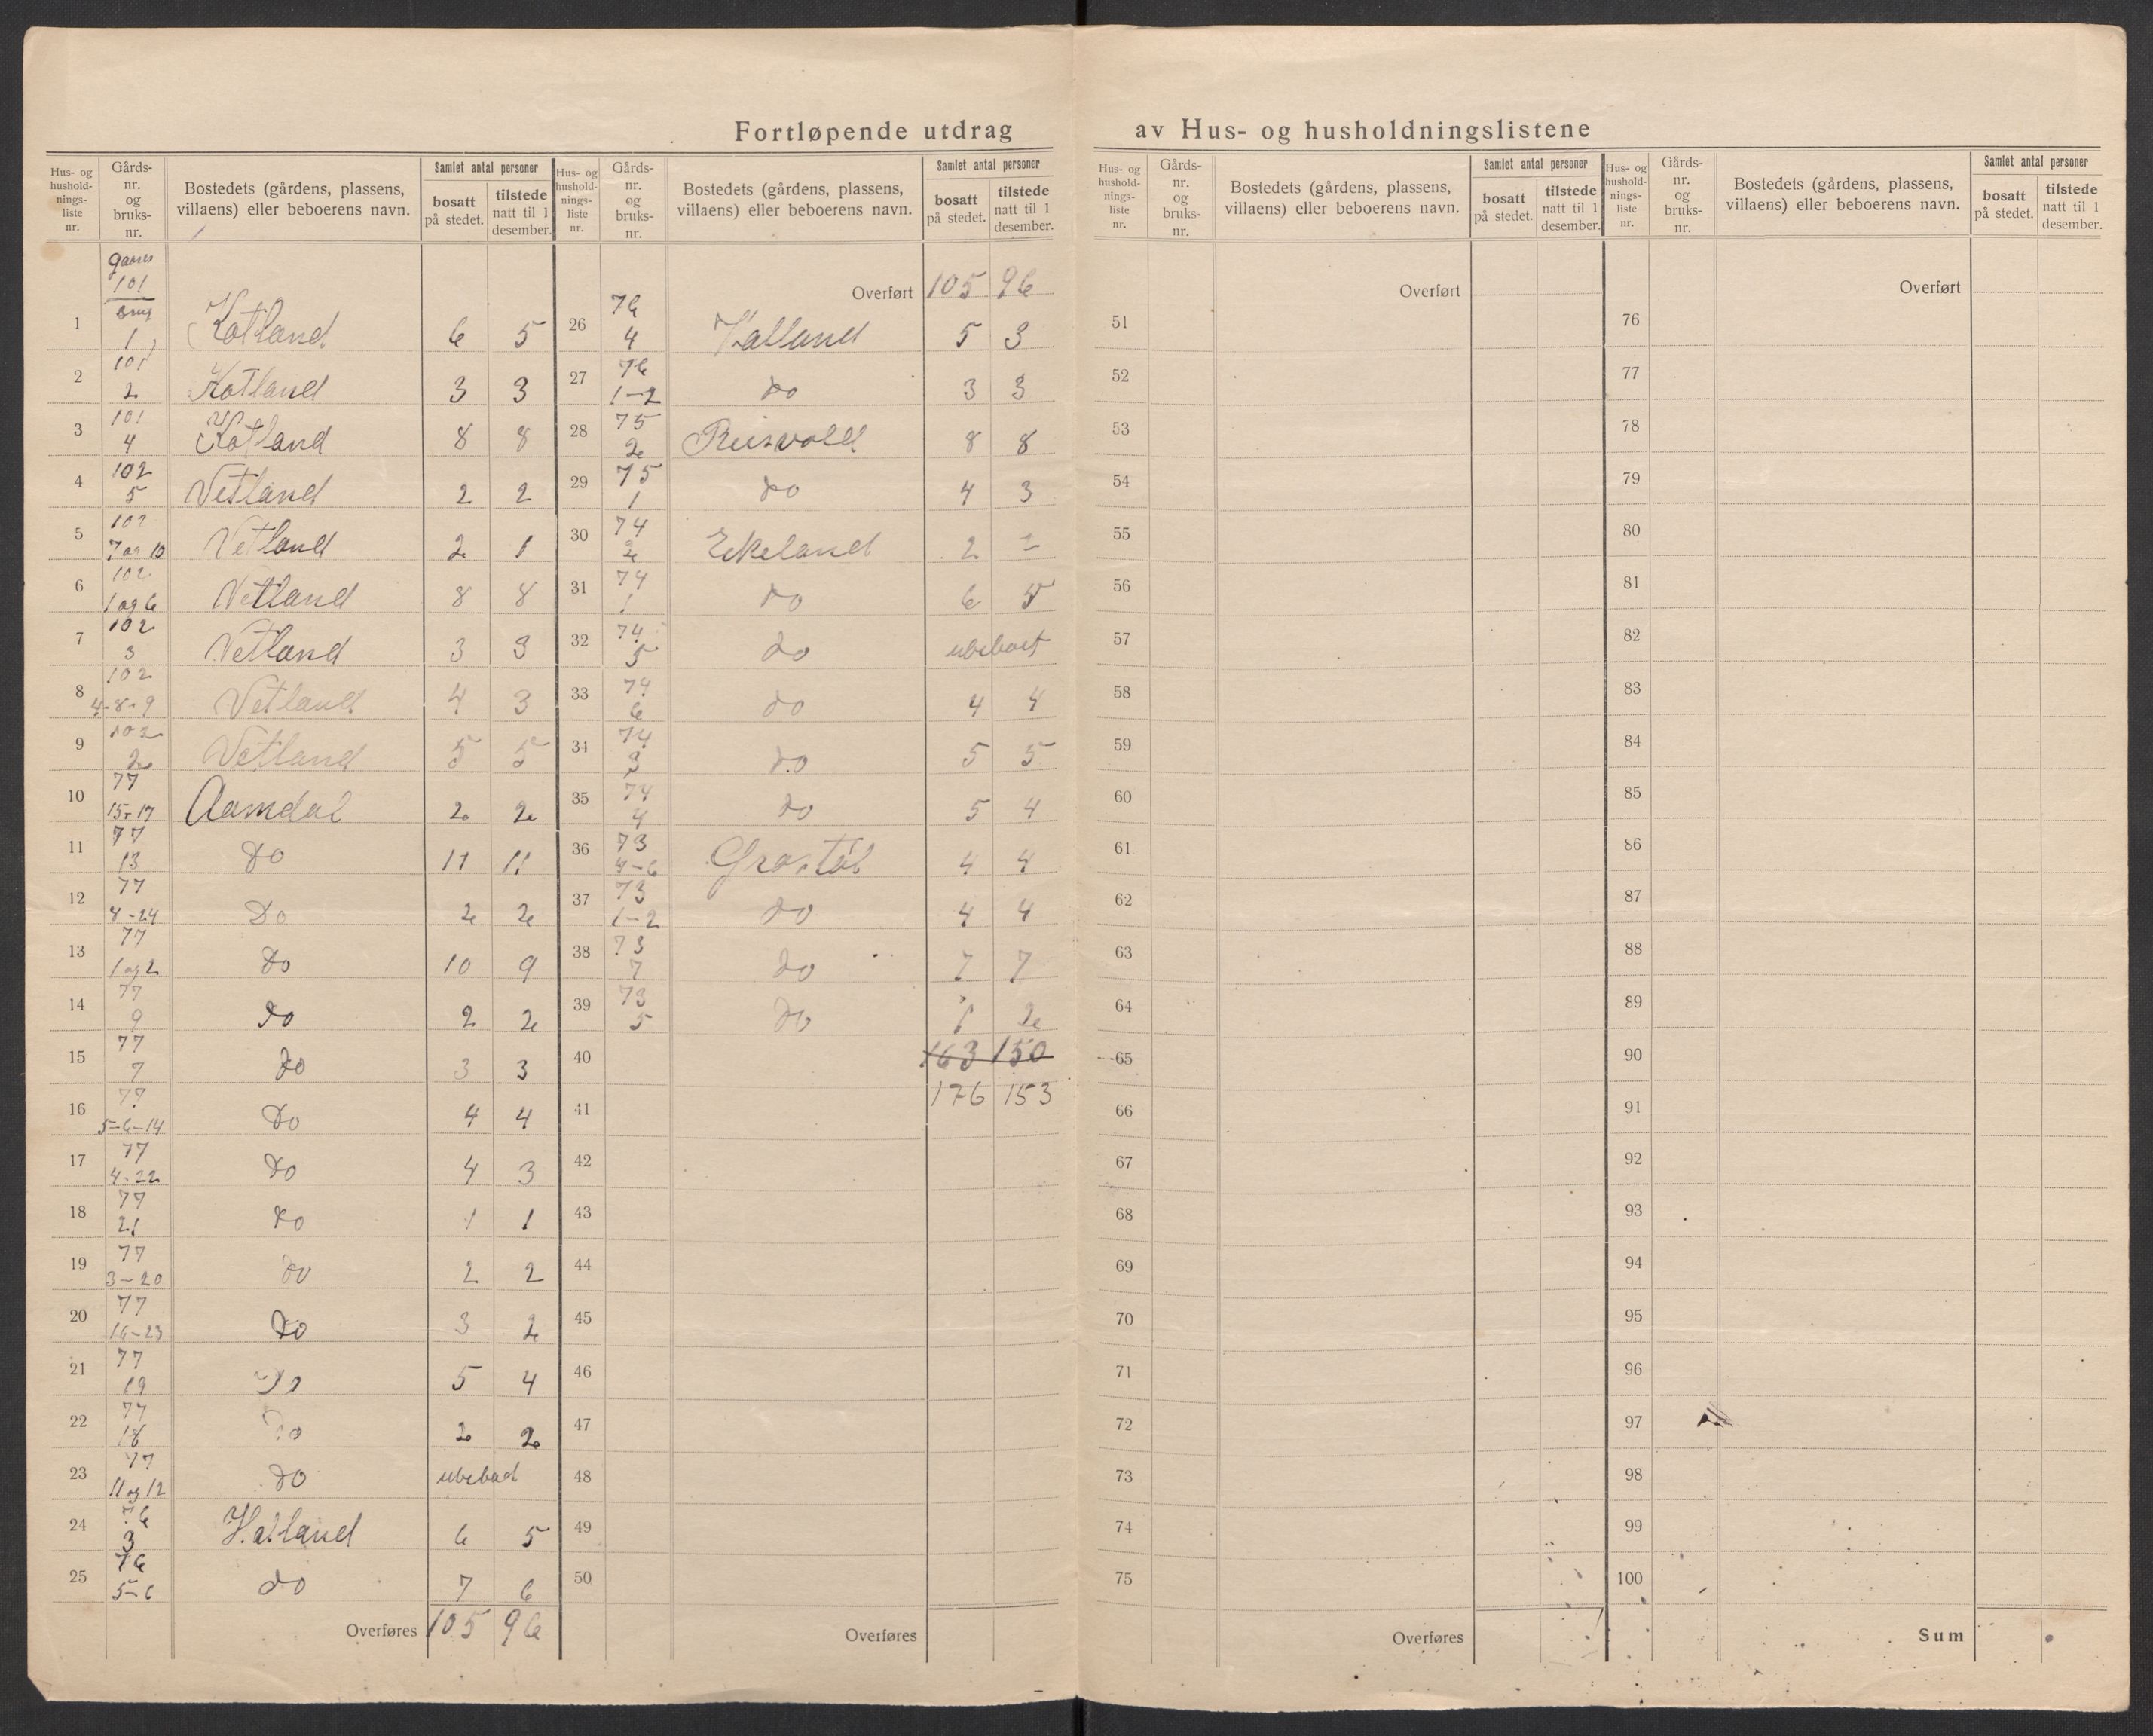 Fortløpende utdrag av Hus- og husholdningslistene
Hus- og hushold- nings- liste nr. | Gårds- nr. og bruks- nr. | Bostedets (gårdens, plassens, villaens) eller beboerens navn. | Samlet antal personer | bosatt på stedet. | tilstede natt til 1 desember.
1 | 101 1 | Kotland | 6 | 5
2 | 101 2 | Kotland | 3 | 3
3 | 101 4 | Kotland | 8 | 8
4 | 102 5 | Vetland | 2 | 2
5 | 102 7 og 10 | Vetland | 2 | 1
6 | 102 1 og 6 | Vetland | 8 | 8
7 | 102 3 | Vetland | 3 | 3
8 | 102 4-8-9 | Vetland | 4 | 3
9 | 102 2 | Vetland | 5 | 5
10 | 77 15-17 | Aamdal | 2 | 2
11 | 77 13 | Do | 11 | 11
12 | 77 8-24 | Do | 2 | 2
13 | 77 1 og 2 | Do | 10 | 9
14 | 77 9 | do | 2 | 2
15 | 77 7 | do | 3 | 3
16 | 77 5-6-14 | Do | 4 | 4
17 | 77 4-22 | Do | 4 | 3
18 | 77 21 | Do | 1 | 1
19 | 77 3-20 | do | 2 | 2
20 | 77 16-23 | Do | 3 | 2
21 | 77 19 | Do | 5 | 4
22 | 77 18 | Do | 2 | 2
23 | 77 11 og 12 | do | ubebod
24 | 76 3 | Hatland | 6 | 5
25 | 76 5-6 | do | 7 | 6
Overføres 105 96
Hus- og hushold- nings- liste nr. | Gårds- nr. og bruks- nr. | Bostedets (gårdens, plassens, villaens) eller beboerens navn. | Samlet antal personer | bosatt på stedet. | tilstede natt til 1 desember.
Overført 105 96
26 | 76 4 | Hatland | 5 | 3
27 | 76 1-2 | do | 3 | 3
28 | 75 2 | Reisvold | 8 | 8
29 | 75 1 | do | 4 | 3
30 | 74 2 | Eikeland | 2 | -
31 | 74 1 | do | 6 | 5
32 | 74 5 | do | ubeboet
33 | 74 6 | do | 4 | 4
34 | 74 3 | do | 5 | 5
35 | 74 4 | do | 5 | 4
36 | 73 4-6 | 4 | 4
37 | 73 1-2 | do | 4 | 4
38 | 73 7 | do | 7 | 7
39 | 73 5 | do | 2
40 163 150
41 176 153
42
43
44
45
46
47
48
49
50
Overføres
Hus- og hushold- nings- liste nr. | Gårds- nr. og bruks- nr. | Bostedets (gårdens, plassens, villaens) eller beboerens navn. | Samlet antal personer | bosatt på stedet. | tilstede natt til 1 desember.
Overført
51
52
53
54
55
56
57
58
59
60
61
62
63
64
65
66
67
68
69
70
71
72
73
74
75
Overføres
Hus- og hushold- nings- liste nr. | Gårds- nr. og bruks- nr. | Bostedets (gårdens, plassens, villaens) eller beboerens navn. | Samlet antal personer | bosatt på stedet. | tilstede natt til 1 desember.
Overført
76
77
78
79
80
81
82
83
84
85
86
87
88
89
90
91
92
93
94
95
96
97
98
99
100
Sum